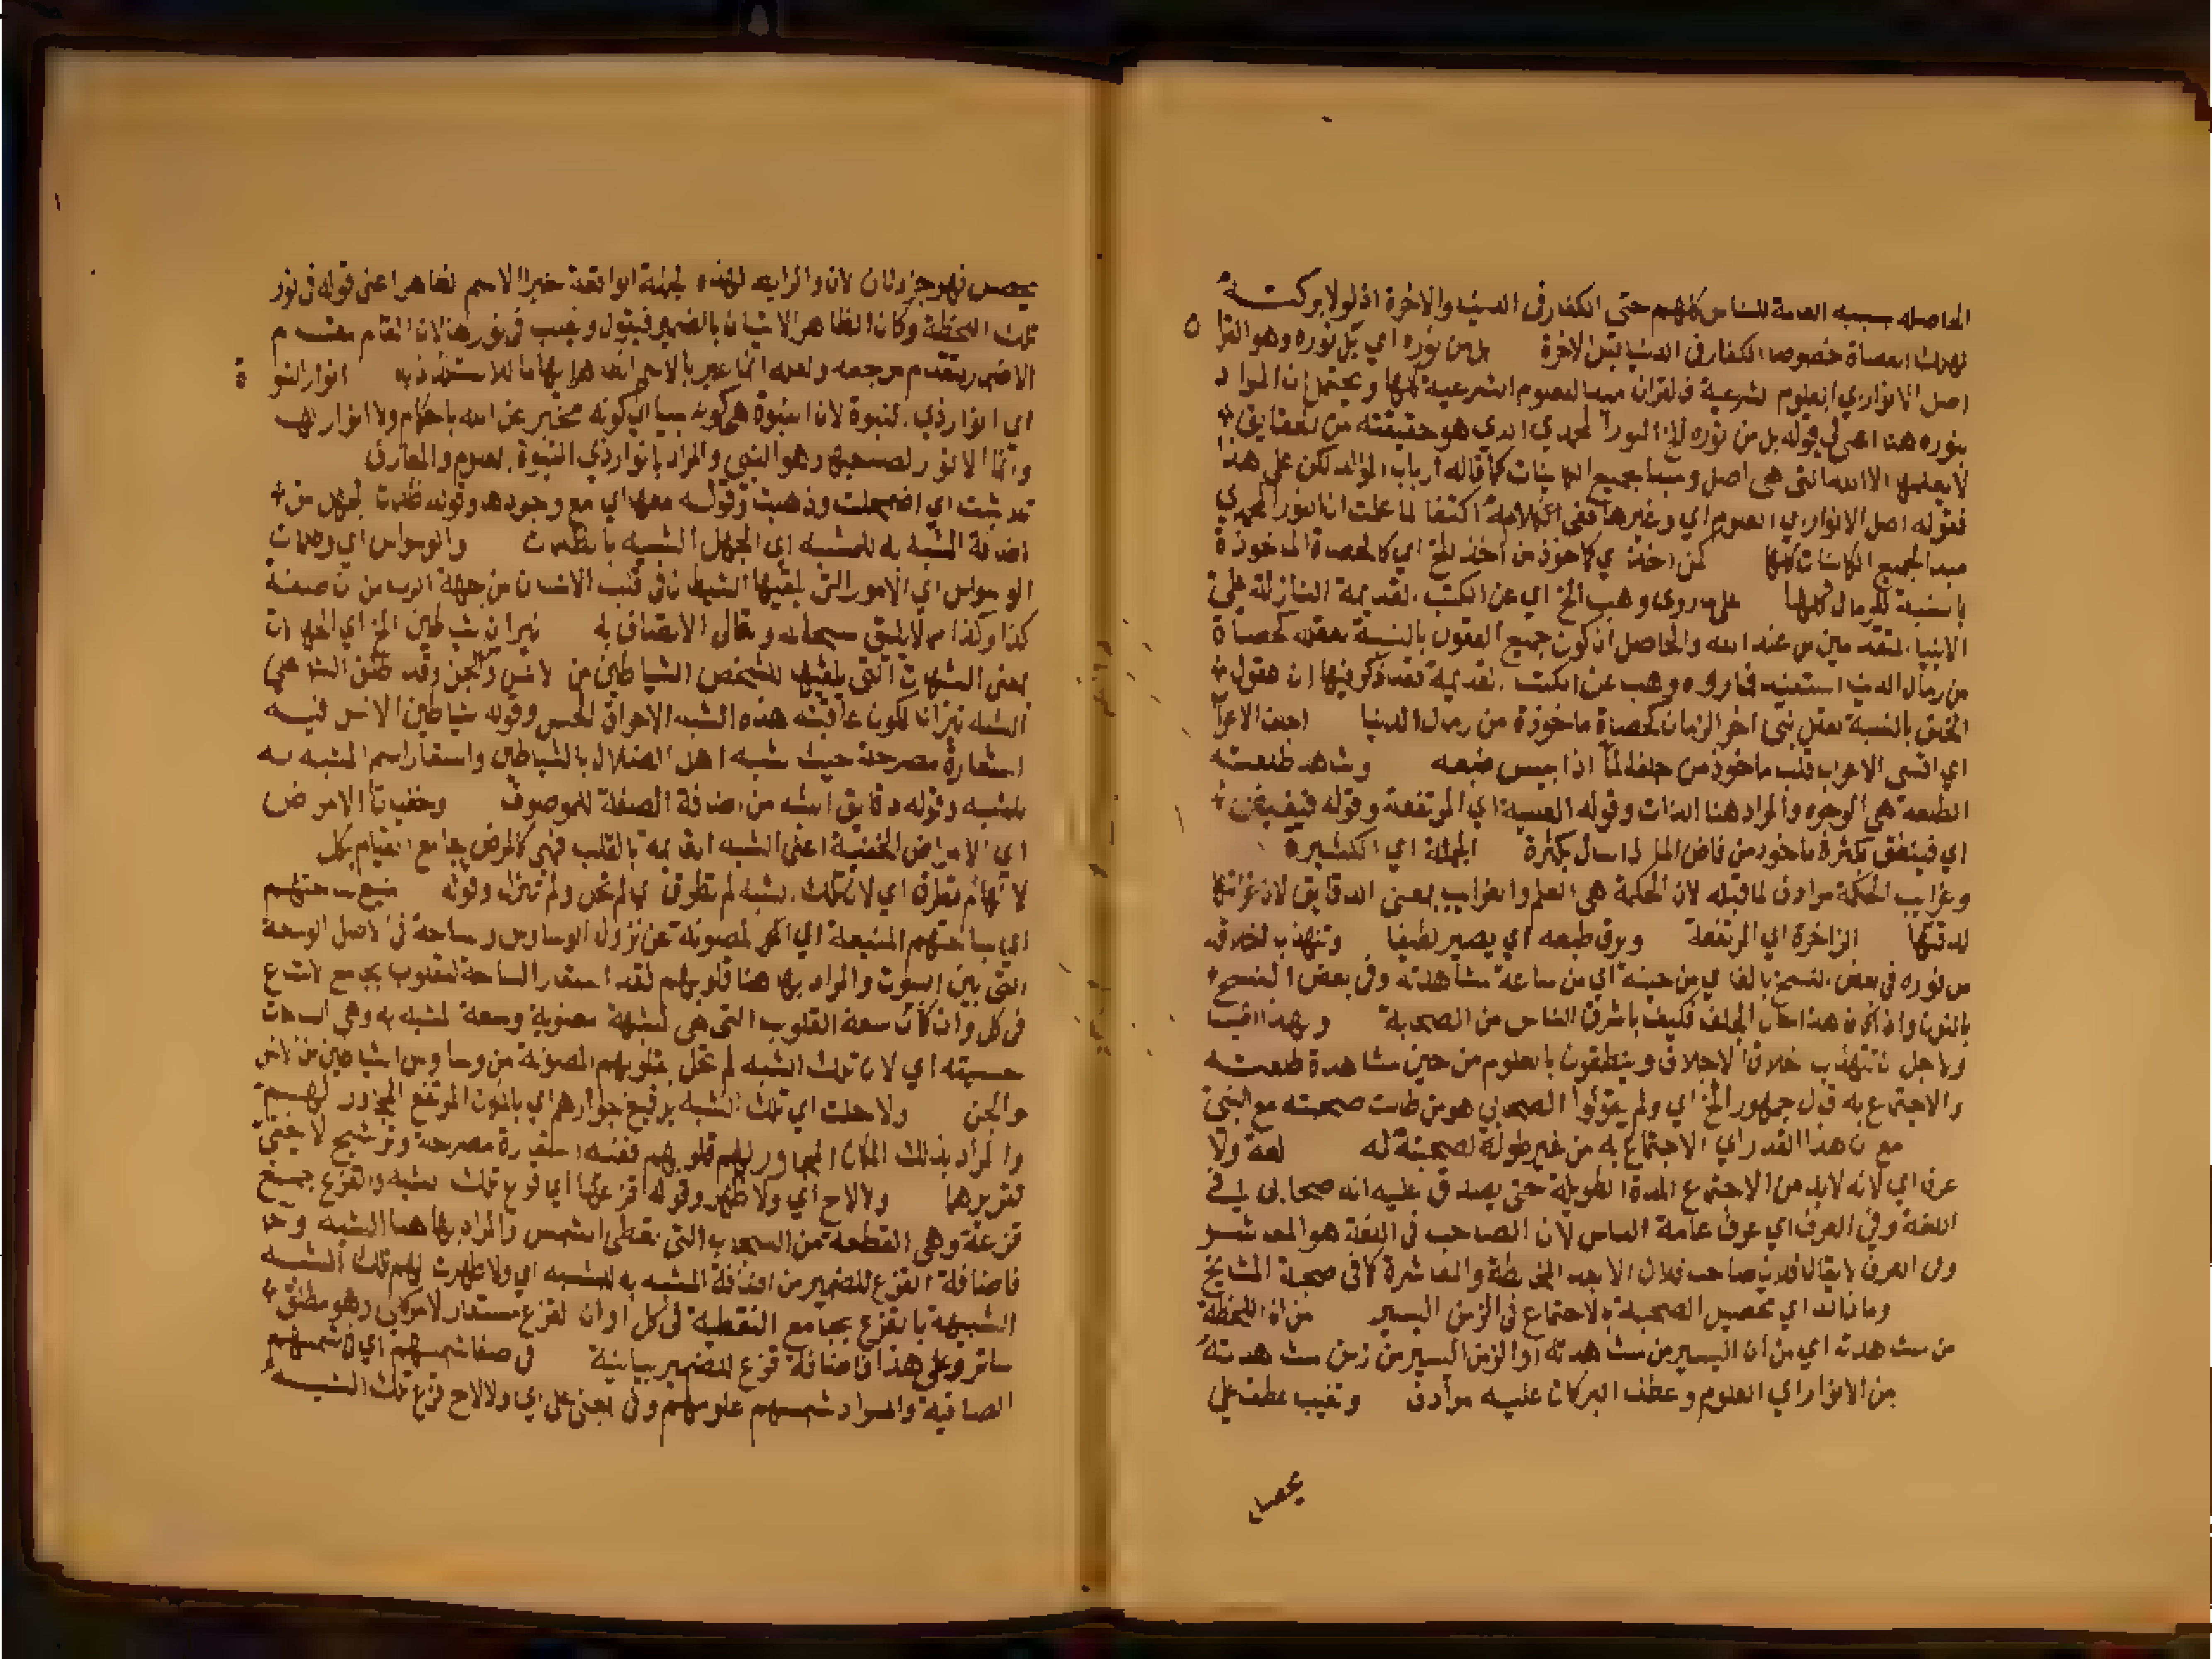 الحاصله بسببه العامة للناس كلهم حتى الكفار فى الدنيا والاخرة اذ لولا بركته
لهلك العصاة خصوصا الكفار فى الدنيا قبل الاخرة بل من نوره اي بل نوره وهو القرا
اصل الانوار اي العلوم الشرعية فالقران مبدا العلوم الشرعية كلها ويحتمل ان المراد
بنوره هنا اعنى فى قوله بل من نوره الخ النور المحمدي الذي هو حقيقته من الحقايق
لا يعلمها الا الله التى هى اصل ومبدا جميع الكاينات كما قاله ارباب لكن على هذا
فقوله اصل الانوار اي العلوم اي وغيرها ففى كلامه اكتفا لما علمت ان النور المحمدي
مبدا لجميع الكاينات كلها كمن اخذ اي كاخذ من اخذ الخ اي كالحصاة الماخوذة
بالنسبة للرمال كلها على ما روى وهب الخ اي عن الكتب القديمة النازلة على
الانبيا المتقدمين من عند الله والحاصل ان كون جميع العقول بالنسبة لعقله كحصاة
من رمال الدنيا استفيد مما رواه وهب عن الكتب القديمة فقد ذكر فيها ان عقول
الخلق بالنسبة لعقل نبى اخر الزمان كحصاة ماخوذة من رمال الدنيا اجلف الاعرا
اي اقسى الاعراب قلبا ماخوذ من جلف اذا يبس طبعه وشاهد طلعته
الطلعة هى الوجه والمراد هنا الذات وقوله العلية اي المرتفعة وقوله فيفيض
اي فينطق بكثرة ماخوذ من فاض الما اذا سال بكثرة الجمة اي الكثيرة
وغرايب الحكمة مرادف لما قبله لان الحكمة هى العلم والغرايب بمعنى الدقايق لان غرابتها
لدقتها الزاخرة اي المرتفعة ويرق طبعه اي يصير لطيفا وتتهذب اخلاقه
من فوره فى بعض النسخ بالفا اي من حينه اي من ساعة مشاهدته وفى بعض النسخ
بالنون واذا كان هذا حال الجلف فكيف باشرف الناس من الصحابة ولهذا
ولاجل ان تتهذب اخلاق الاجلاف وينطقون بالعلوم من حين مشاهدة طلعته
والاجتماع به قال جمهور الخ اي ولم يقولوا الصحابي هو من طالت صحبته مع النبى
مع ان هذا القدر اي الاجتماع به من غير طول لصحبته له لغة ولا
عرفا اي لانه لا بد من الاجتماع المدة الطويلة حتى يصدق عليه انه صحابى فى
اللغة وفى العرف اي عرف عامة الناس لان الصاحب فى اللغة هو المعاشر
وفى العرف لا يقال فلان صاحب فلان الا بعد المخالطة والمعاشرة كما فى صحبة المشايخ
وما ذاك اي تحصيل الصحبة بالاجتماع فى الزمن اليسير من ان اللحظة
من مشاهدته اي من ان اليسير من مشاهدته او الزمن اليسير من زمن مشاهدته
من الانوار اي العلوم وعطف البركات عليه مرادف وتغيب عطف على
يحصل
يحصل فهو جزء ثان لان والرابط لهذه الجملة الواقعة خبرا الاسم الظاهر اعنى قوله فى نور
تلك اللحظة وكان الظاهر الاتيان بالضمير فيقول وتغيب فى نورها لان المقام مقام
الاضمار لتقدم مرجعه ولعله انما عبر بالاسم الظاهر للاستلذاذ به انوار النبو
ة
اي انوار ذي النبوة لان النبوة هى كونه نبيا اي كونه مخبرا عن الله باحكام ولا انوار لها
وانما الانوار لصاحبها وهو النبى والمراد بانوار ذي النبوة العلوم والمعارف
تلاشت اي اضمحلت وذهبت وقوله معها اي مع وجودها وقوله ظلمات الجهل من
اضافة المشبه به للمشبه اي الجهل الشبيه بالظلمات والوسواس اي وظلمات
الوسواس اي الامور التى يلقيها الشيطان فى قلب الانسان من جهة الرب من ان صفته
كذا وكذا مما لا يليق سبحانه وتعالى الاتصاف به نيران شياطين الخ اي الشبهات
يعنى الشبهات التى يلقيها للشخص الشياطين من الانس والجن وقد اطلق الشارح على
الشبه نيرانا لكون عاقبة هذه الشبه الاحراق الحس وقوله شياطين الانس فيه
استعارة مصرحة حيث شبه اهل الضلال بالشياطين واستعار اسم المشبه به
للمشبه وقوله دقايق الشبه من اضافة الصفة للموصوف وخفيات الامراض
اي الامراض الخفية اعنى الشبه القايمة بالقلب فهى كالمرض بجامع القيام بكل
لانها لم تطرق اي لان تلك الشبه لم تطرق اي لم تحل ولم تنزل وقوله منيع ساحتهم
اي ساحتهم المنيعة اي المصونة عن نزول الوساوس وساحة فى الاصل الوسعة
التى بين البيوت والمراد بها هنا قلوبهم لقد استعار الساحة للقلوب بجامع الاتساع
فى كل وان كان سعة القلوب التى هى المشبهة معنوية وسعة المشبه به وهى الساحات
حسية اي لان تلك الشبه لم تحل بقلوبهم المصونة من وساوس الشياطين من الانس
والجن ولا حلت اي تلك الشبه برفيع جوارهم اي بالمكان المرتفع المجاور لهم
والمراد بذلك المكان المجاور لهم قلوبهم ففيه استعارة مصرحة وترشيح لا يخفى
تقريرهما ولا لاح اي ولا ظهر وقوله قزعها اي قزع تلك الشبه والقزع جمع
قزعة وهى القطعة من السحاب التى تغطى الشمس والمراد بها هنا الشبه
فاضافة القزع للضمير من اضافة المشبه به للمشبه اي ولا ظهرت لهم تلك الشبه
الشبيهة بالقزع بجامع التغطية فى كل او ان القزع مستعار لامر كلى وهو مطلق
ساتر وعلى هذا فاضافة قزع للضمير بيانية فى صفا شمسهم اي فى شمسهم
الصافية والمراد شمسهم علومهم وفى بمعنى على اي ولا لاح قزع تلك الشبه